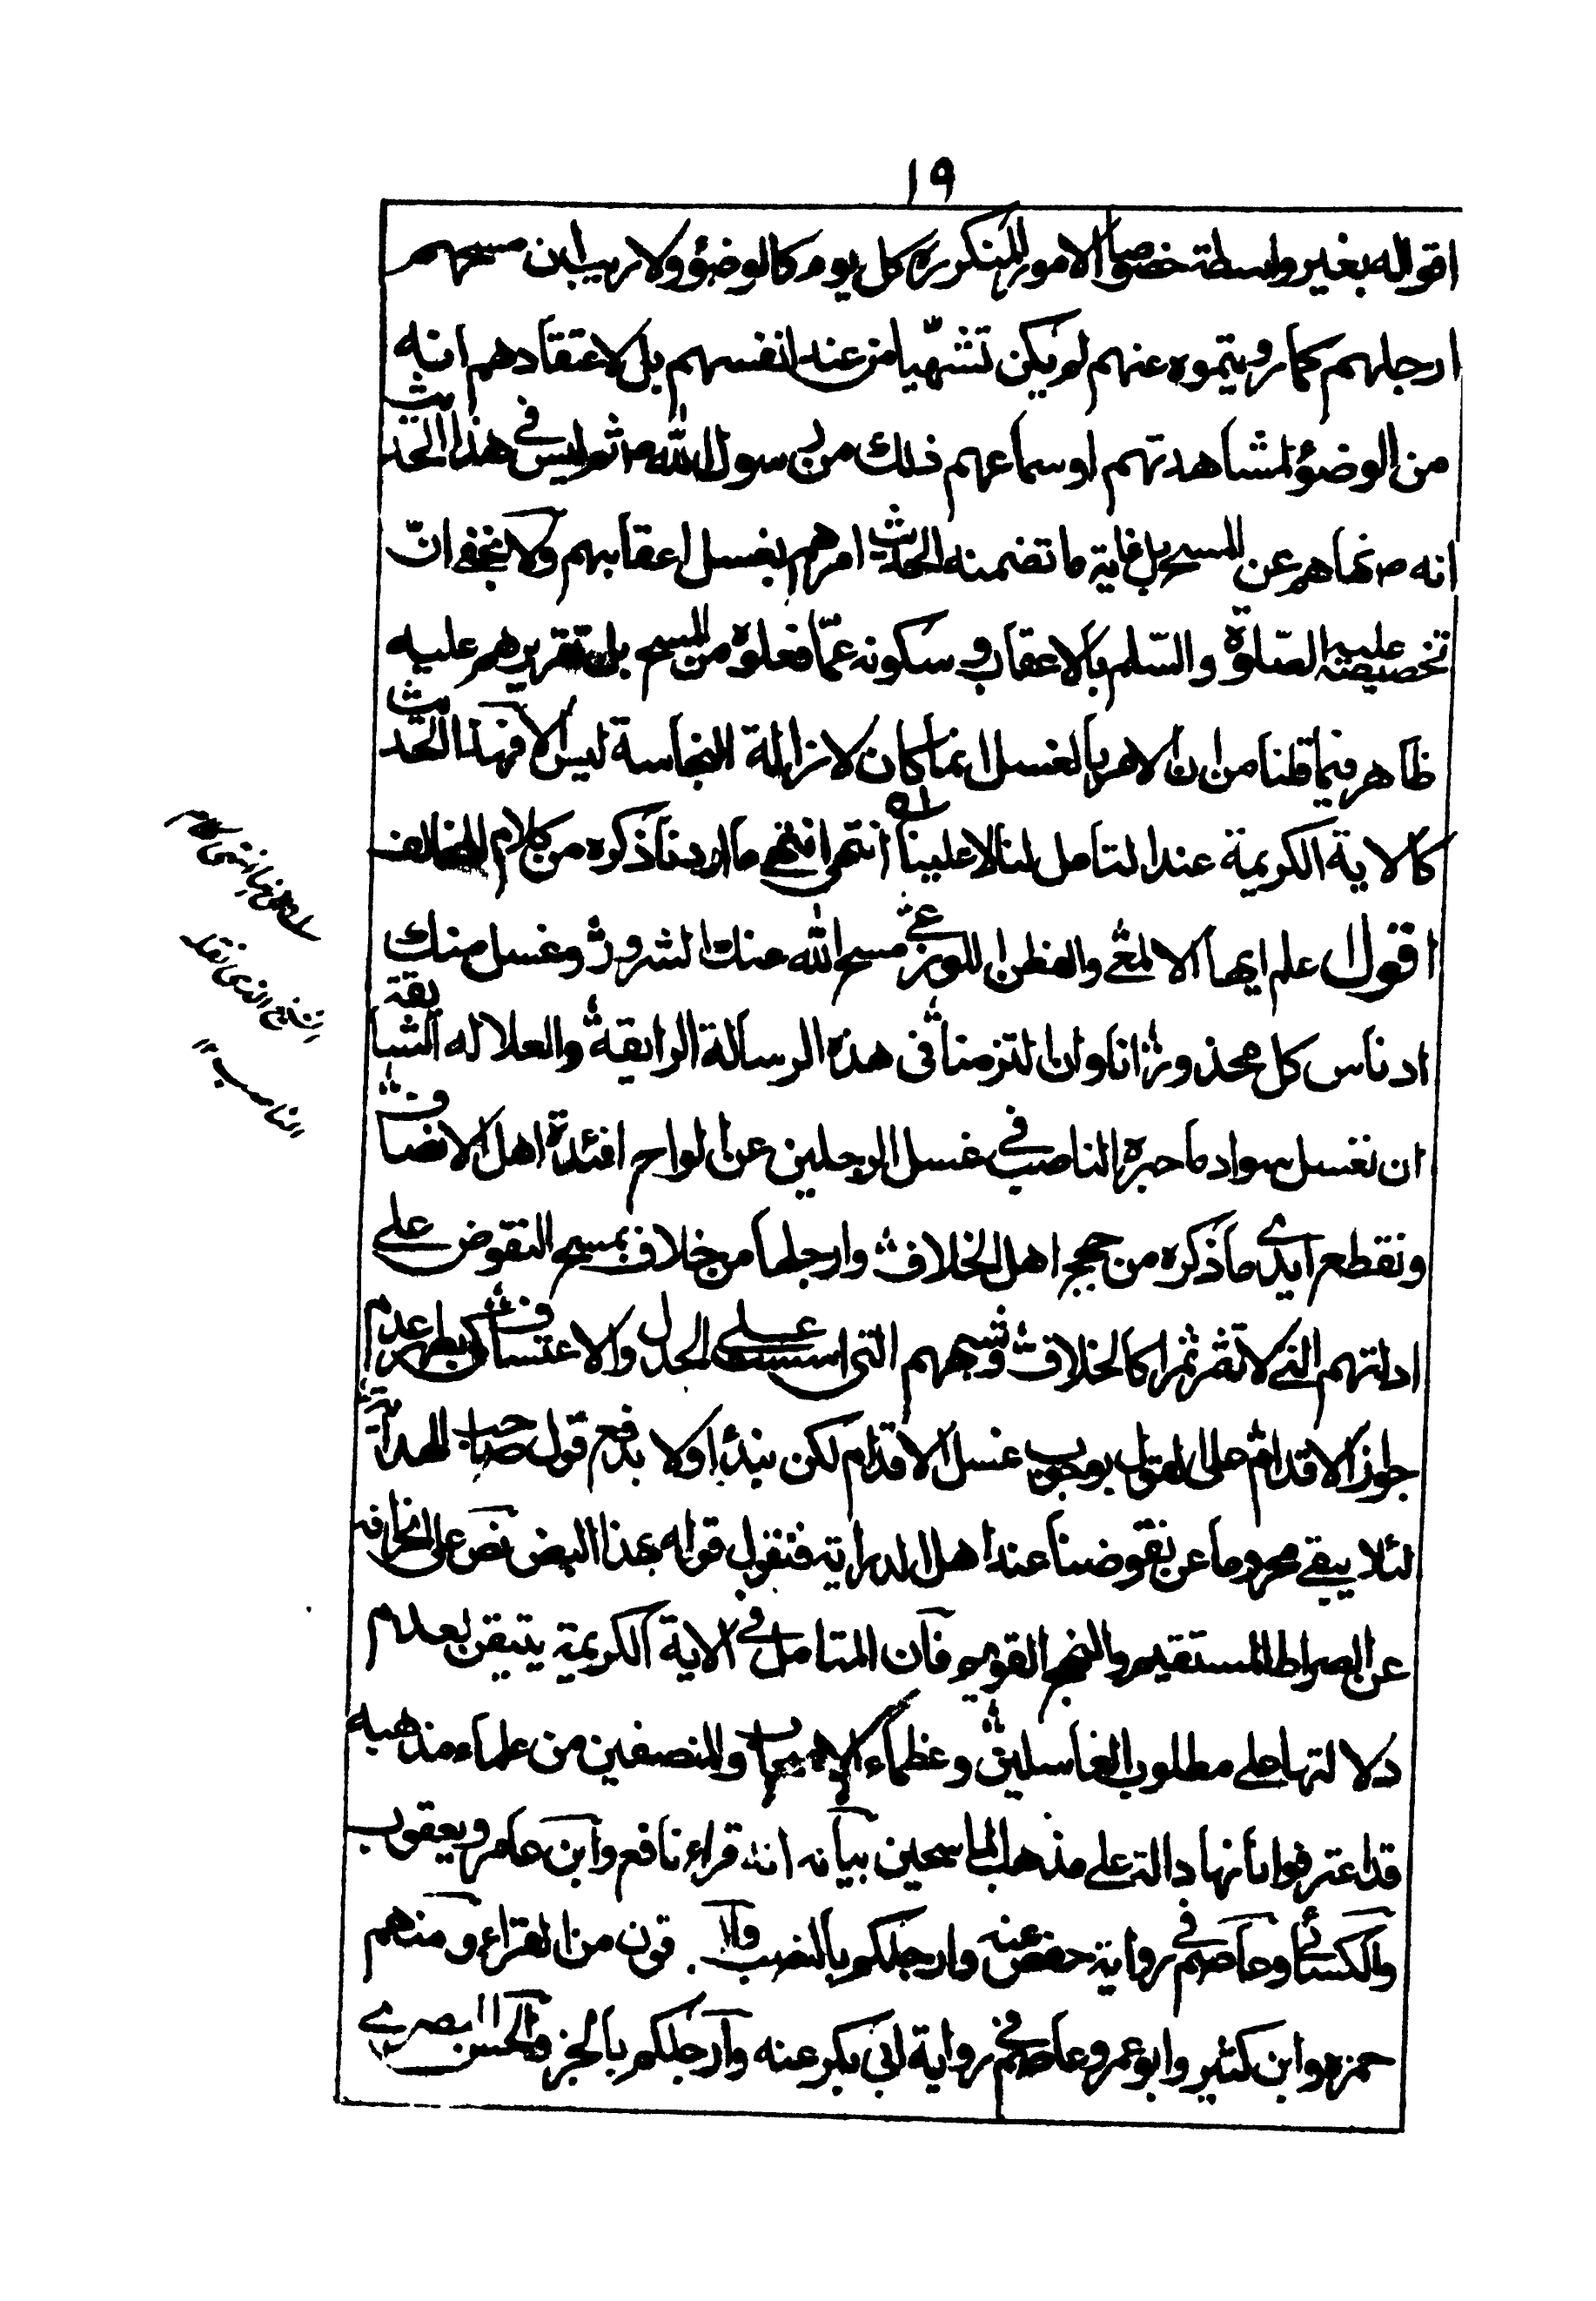 ١٩
اقواله بغير واسطة خصوصا الامور المتكررة كل يوم كالوضوء ولا ريب ان مسحهم
ارجلهم كما رويتموه عنهم لم يكن تشهّيا من عند انفسهم بل لاعتقادهم انه
من الوضوء لمشاهدتهم او سماعهم ذلك من رسول الله ص ثم ليس في هذا الحديث
انه ص نهاهم عن المسح بل غاية ما تضمنه الحديث امرهم بغسل اعقابهم ولا يخفى انّ
تخصيصه عليه الصّلوة والسّلم بالاعقاب وسكوته عمّا فعلوه من المسح بل تقريرهم عليه
ظاهر فيما قلنا من ان الامر بالغسل انما كان لازالة النجاسة ليس الا فهذا الحديث
كالاية الكريمة عند التامل لنا لا علينا انتهى انتهى ما اردنا ذكره من كلام المخالف
اقول اعلم ايها الالمعي والفطن اللوذعي مسح الله عنك الشرور وغسل منك
ادناس كل محذور انا وان التزمنا في هذه الرسالة الرايقة والعلاله الشايقة
ان نغسل سواد ما حبره الناصب في غسل الرجلين عن الواح افئدة اهل الانصاف
ونقطع ايدي ما ذكره من حجج اهل الخلاف وارجلها من خلاف بمسح النقوض على
ادلتهم التي لا تثمر ثمرا كالخلاف وشبههم التي اسست على الجدل والاعتساف كي يظهر عدم
جواز الاقدام على القول بوجوب غسل الاقدام لكن نبدأ اولا بدفع قول صاحب الهداية
لئلا يبقى محروما عن نقوضنا عند اهل الدراية فنقول قوله بهذا النص نص على انحرافه
عن الصراط المستقيم والنهج القويم فان المتامل في الاية الكريمة يتيقن بعدم
دلالتها على مطلوب الغاسلين وعظماء والمنصفين من علماء مذهبه
قد اعترفوا بأنها دالة على مذهب الماسحين بيانه انه قراء نافع وابن عامر ويعقوب
والكسائي وعاصم في رواية حفص عنه وارجلكم بالنصب والباقون من القراء ومنهم
حمزه وابن كثير وابو عمرو وعاصم في رواية ابي بكر عنه وارجلكم بالجر والحسن البصري
انتهى كلام
الذي نقله
الناصب